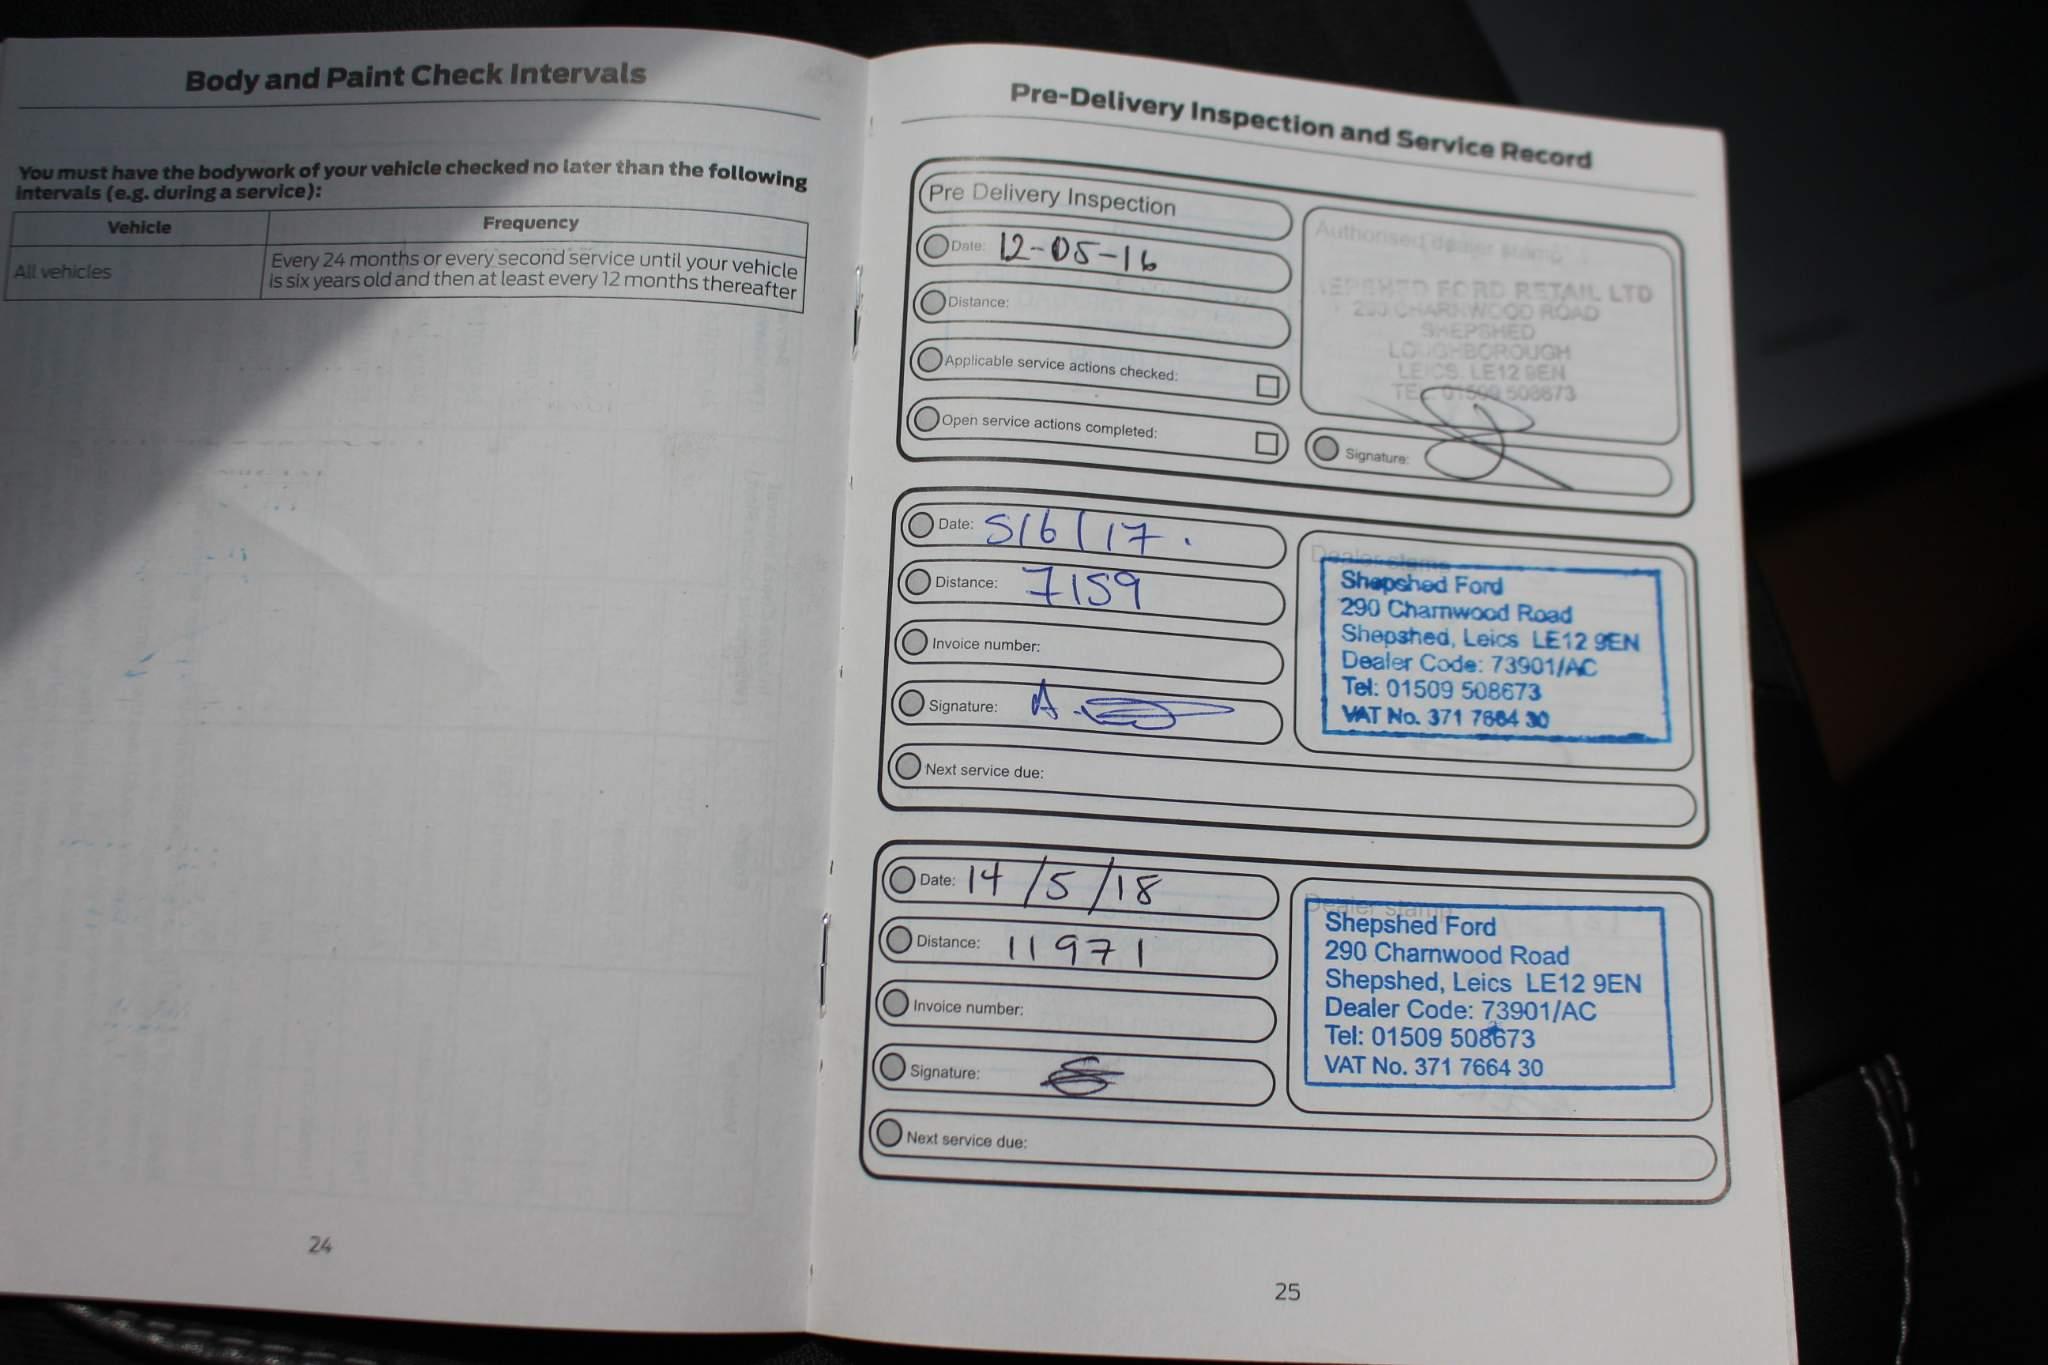 Body and Paint Check Intervals
You must have the bodywork of your vehicle checked no later than the following
intervals (e.g. during a service):
Vehicle Frequency
All vehicles Every 24 months or every second service until your vehicle
is six years old and then at least every 12 months thereafter
24
Pre-Delivery Inspection and Service Record
Pre Delivery Inspection
Date: 12-05-16
Distance:
Applicable service actions checked:
Open service actions completed:
Authorised dealer stamp
FORD RETAIL LTD
290 CHARNWOOD ROAD
SHEPSHED
LOUGHBOROUGH
LEICS. LE12 9EN
TEL: 01509 508673
Signature:
Date: 5/6/17.
Distance: 7159
Invoice number:
Signature: A.
Next service due:
Dealer stamp
Shepshed Ford
290 Charnwood Road
Shepshed, Leics LE12 9EN
Dealer Code: 73901/AC
Tel: 01509 508673
VAT No. 371 7664 30
Date: 14/5/18
Distance: 11971
Invoice number:
Signature:
Next service due:
Dealer stamp
Shepshed Ford
290 Charnwood Road
Shepshed, Leics LE12 9EN
Dealer Code: 73901/AC
Tel: 01509 508673
VAT No. 371 7664 30
25